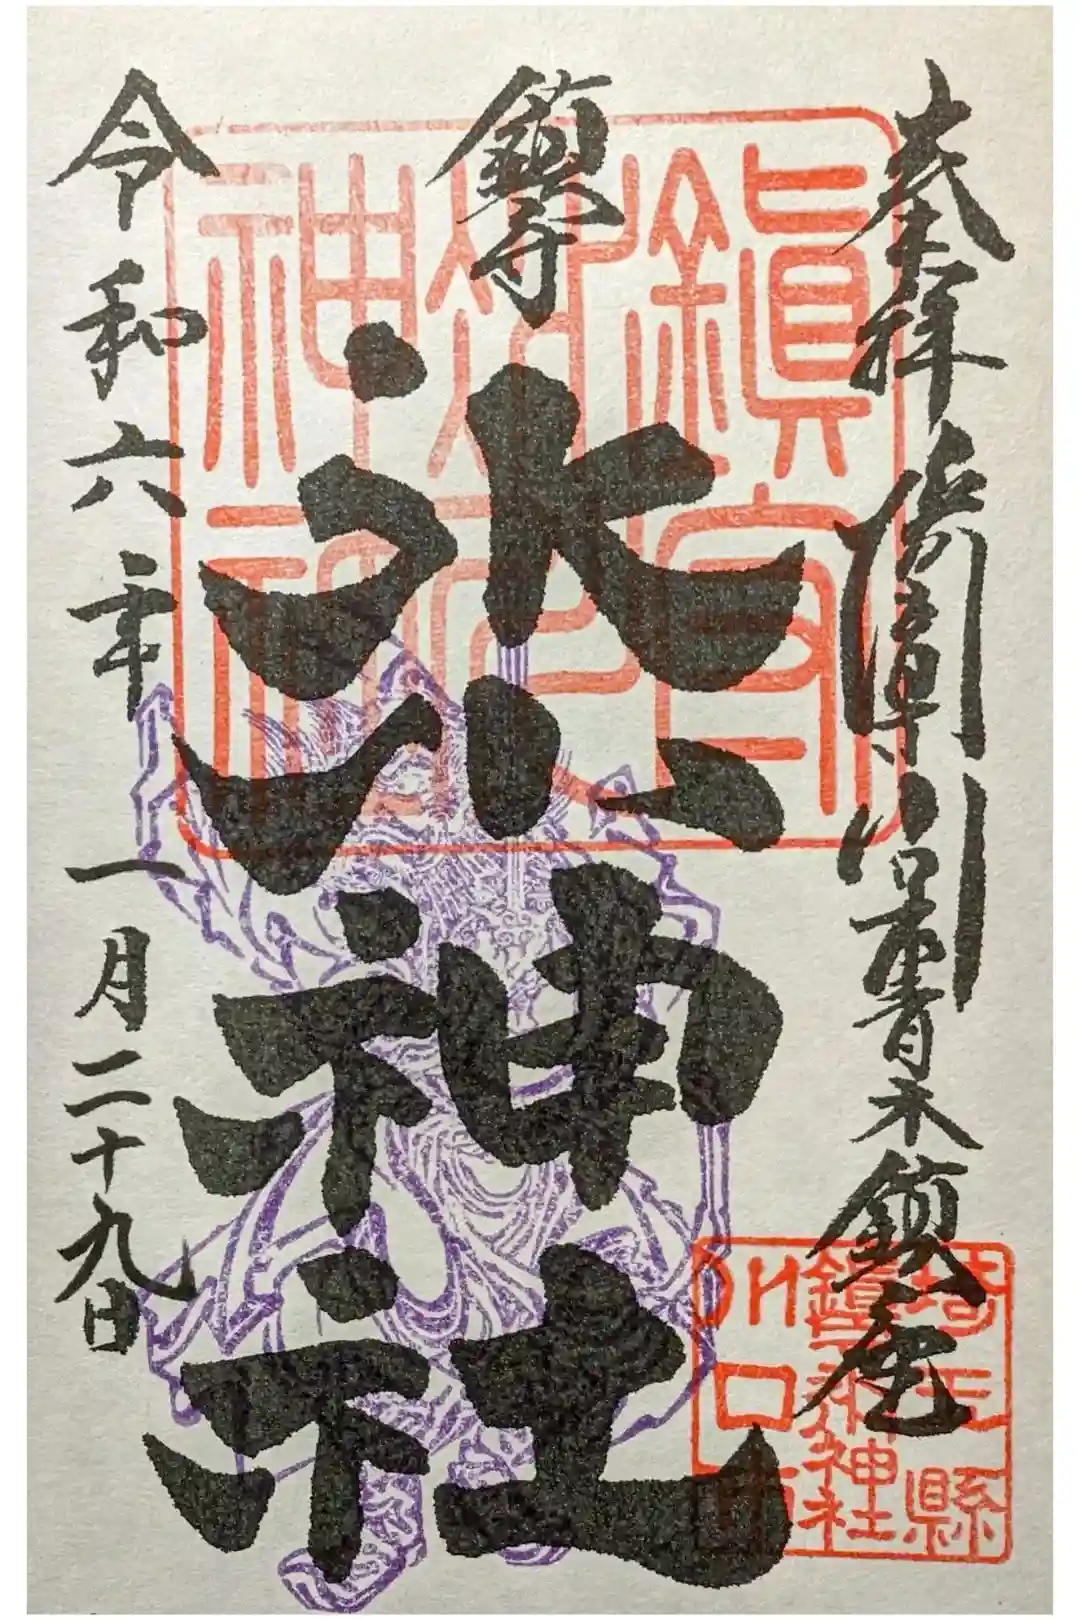 奉拝
川口市青木鎮座
鎮守
氷川神社
令和六年一月二十九日
鎮守
氷川
神社
埼玉縣
鎮守氷川神社
川口市